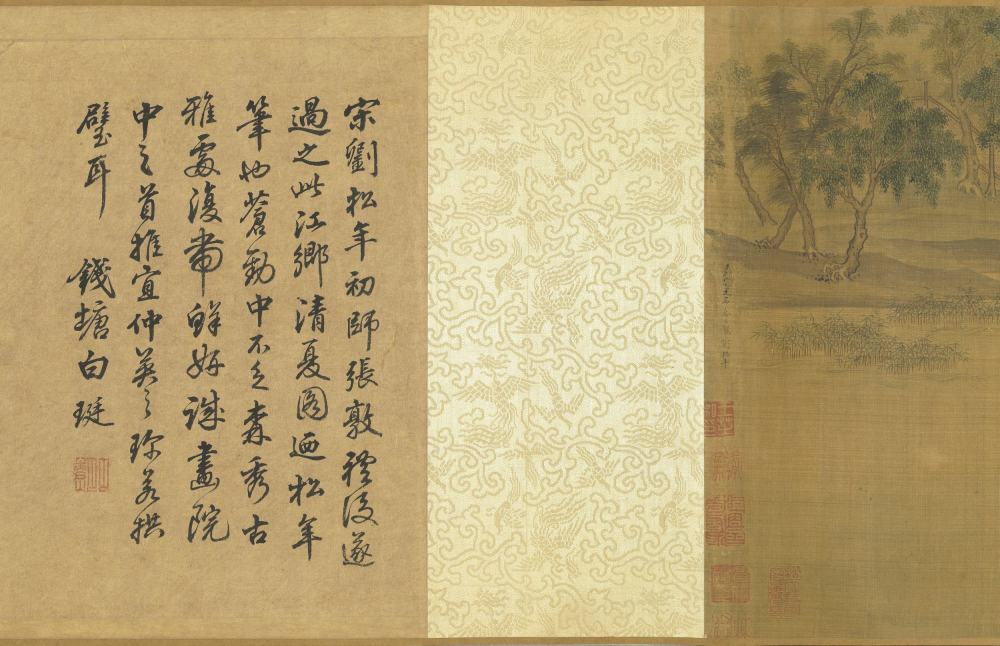 宋劉松年初師張敦禮後遂
過之此江鄉清夏圖迺松年
筆也蒼勁中不乏森秀古
雅處復帶鮮妍誠畫院
中之首推宜仲英之珍若拱
璧耳 錢塘白珽